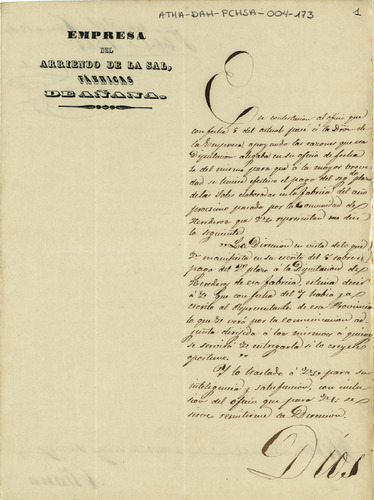 ATHA-DAH-FCHSA-004-173
1
EMPRESA
DEL
ARRIENDO DE LA SAL,
FÁBRICAS
DE AÑANA.
En contestacion al oficio que
con fecha 5 del actual pasé á la Dron de
la Empresa, apoyando las razones que esa
Diputacion alegaba en su oficio de fecha
del mismo para que á la mayor breve-
dad se hiciera efectivo el pago del seg.do plazo
de las Sales elaboradas en la fabrica del año
proximo pasado por la Comunidad de
Herederos que Vs representan me dice
lo siguiente
"La Direccion en vista de lo que
V. manifiesta en su escrito del 5 sobre el
pago del 2.º plazo á la Diputacion de
Herederos de esa fabrica, estima decir
á V. que con fecha del 7 habia ya
escrito al Representante de esa Provincia
lo que V. verá por la comunicacion ad-
junta dirigida á los mismos á quienes
se servirá V. entregarla si lo cree
oportuno.
Y lo traslado á Vs para su
inteligencia y satisfaccion, con inclu-
sion del oficio que para Vs se
sirve remitirme la Direccion.
Dios